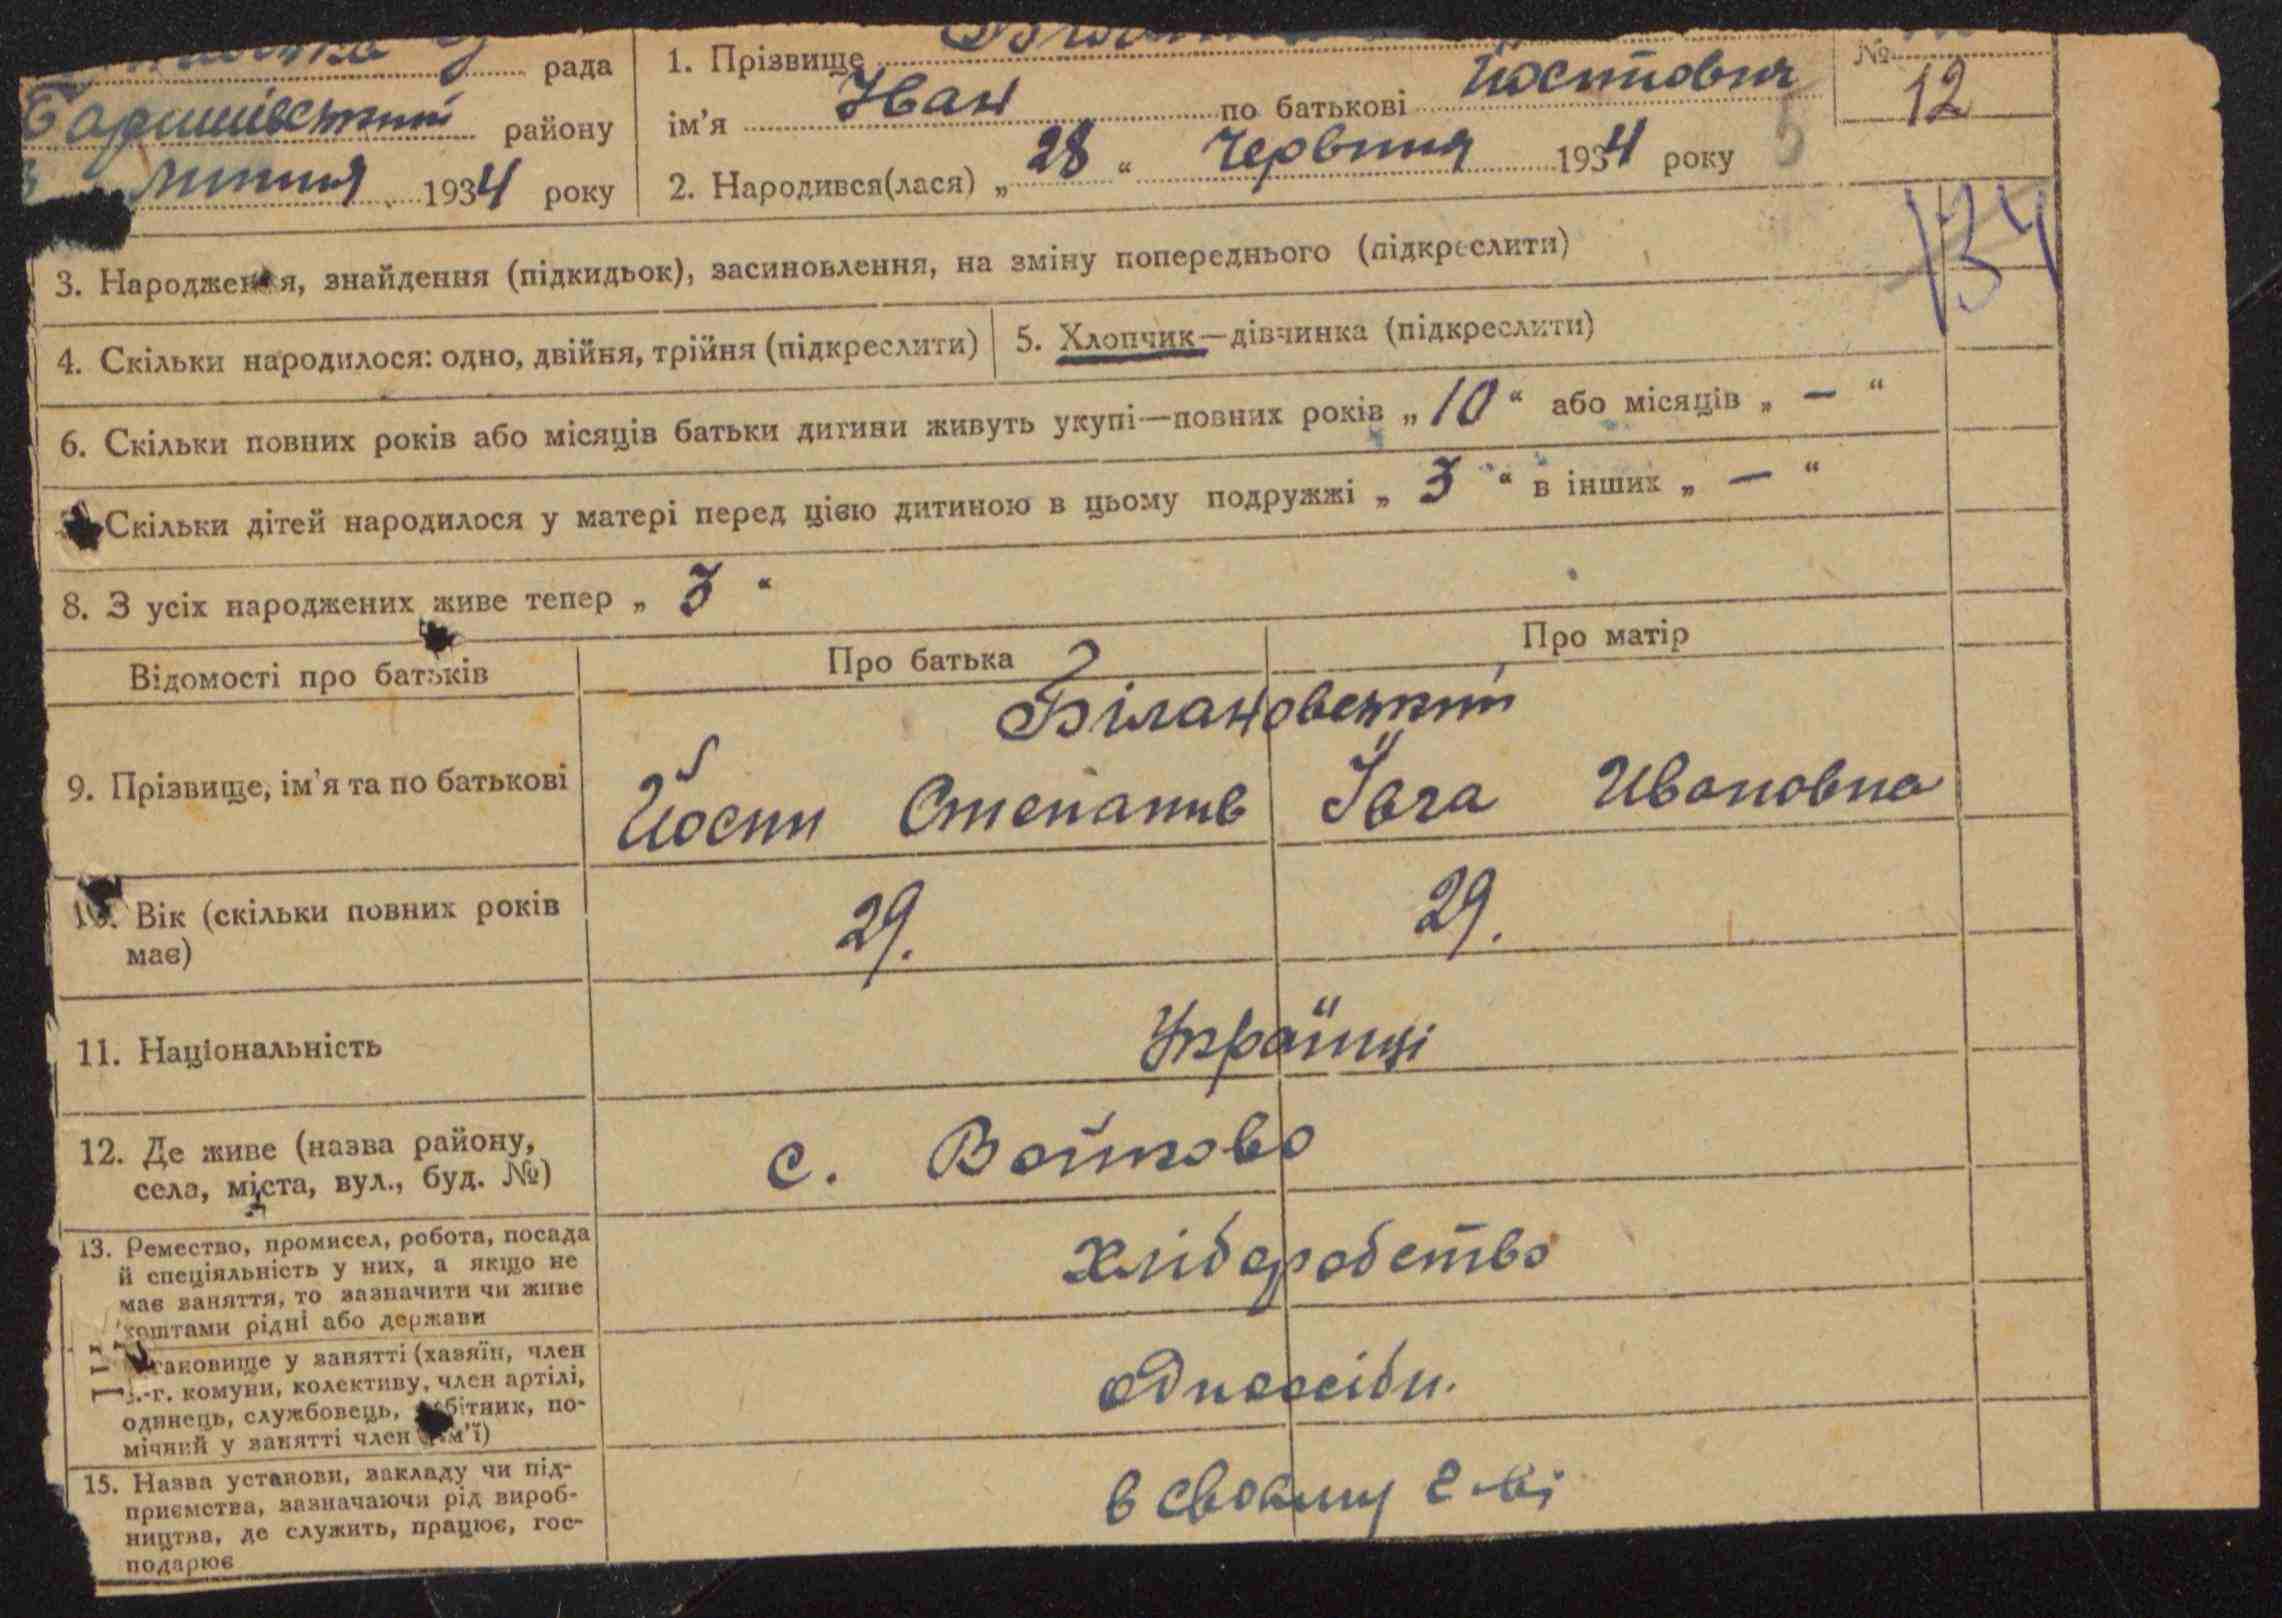 рада
Баришівський району
липня 1934 року
1. Прізвище
ім'я Іван по батькові Йостович
2. Народився(лася) „ 28 “ Червння 1934 року
№
12
5
134
3. Народження, знайдення (підкидьок), засиновлення, на зміну попереднього (підкреслити)
4. Скільки народилося: одно, двійня, трійня (підкреслити)
5. Хлопчик—дівчинка (підкреслити)
6. Скільки повних років або місяців батьки дитини живуть укупі—повних років „ 10 “ або місяців „ — “
Скільки дітей народилося у матері перед цією дитиною в цьому подружжі „ 3 “ в інших „ — “
8. З усіх народжених живе тепер „ 3 “
Відомості про батьків
Про батька
Про матір
9. Прізвище, ім'я та по батькові
Білановський
Йости Степанив
Ївга Ивановна
10. Вік (скільки повних років
має)
29.
29.
11. Національність
Українці
12. Де живе (назва району,
села, міста, вул., буд. №)
с. Войтово
13. Ремество, промисел, робота, посада
й спеціяльність у них, а якщо не
має заняття, то зазначити чи живе
коштами рідні або держави
хліборобство
становище у занятті (хазяїн, член
с.-г. комуни, колективу, член артілі,
одинець, службовець, робітник, по-
мічний у занятті член сім'ї)
одноосібн.
15. Назва установи, закладу чи під-
приємства, зазначаючи рід вироб-
ництва, де служить, працює, гос-
подарює
в своєму